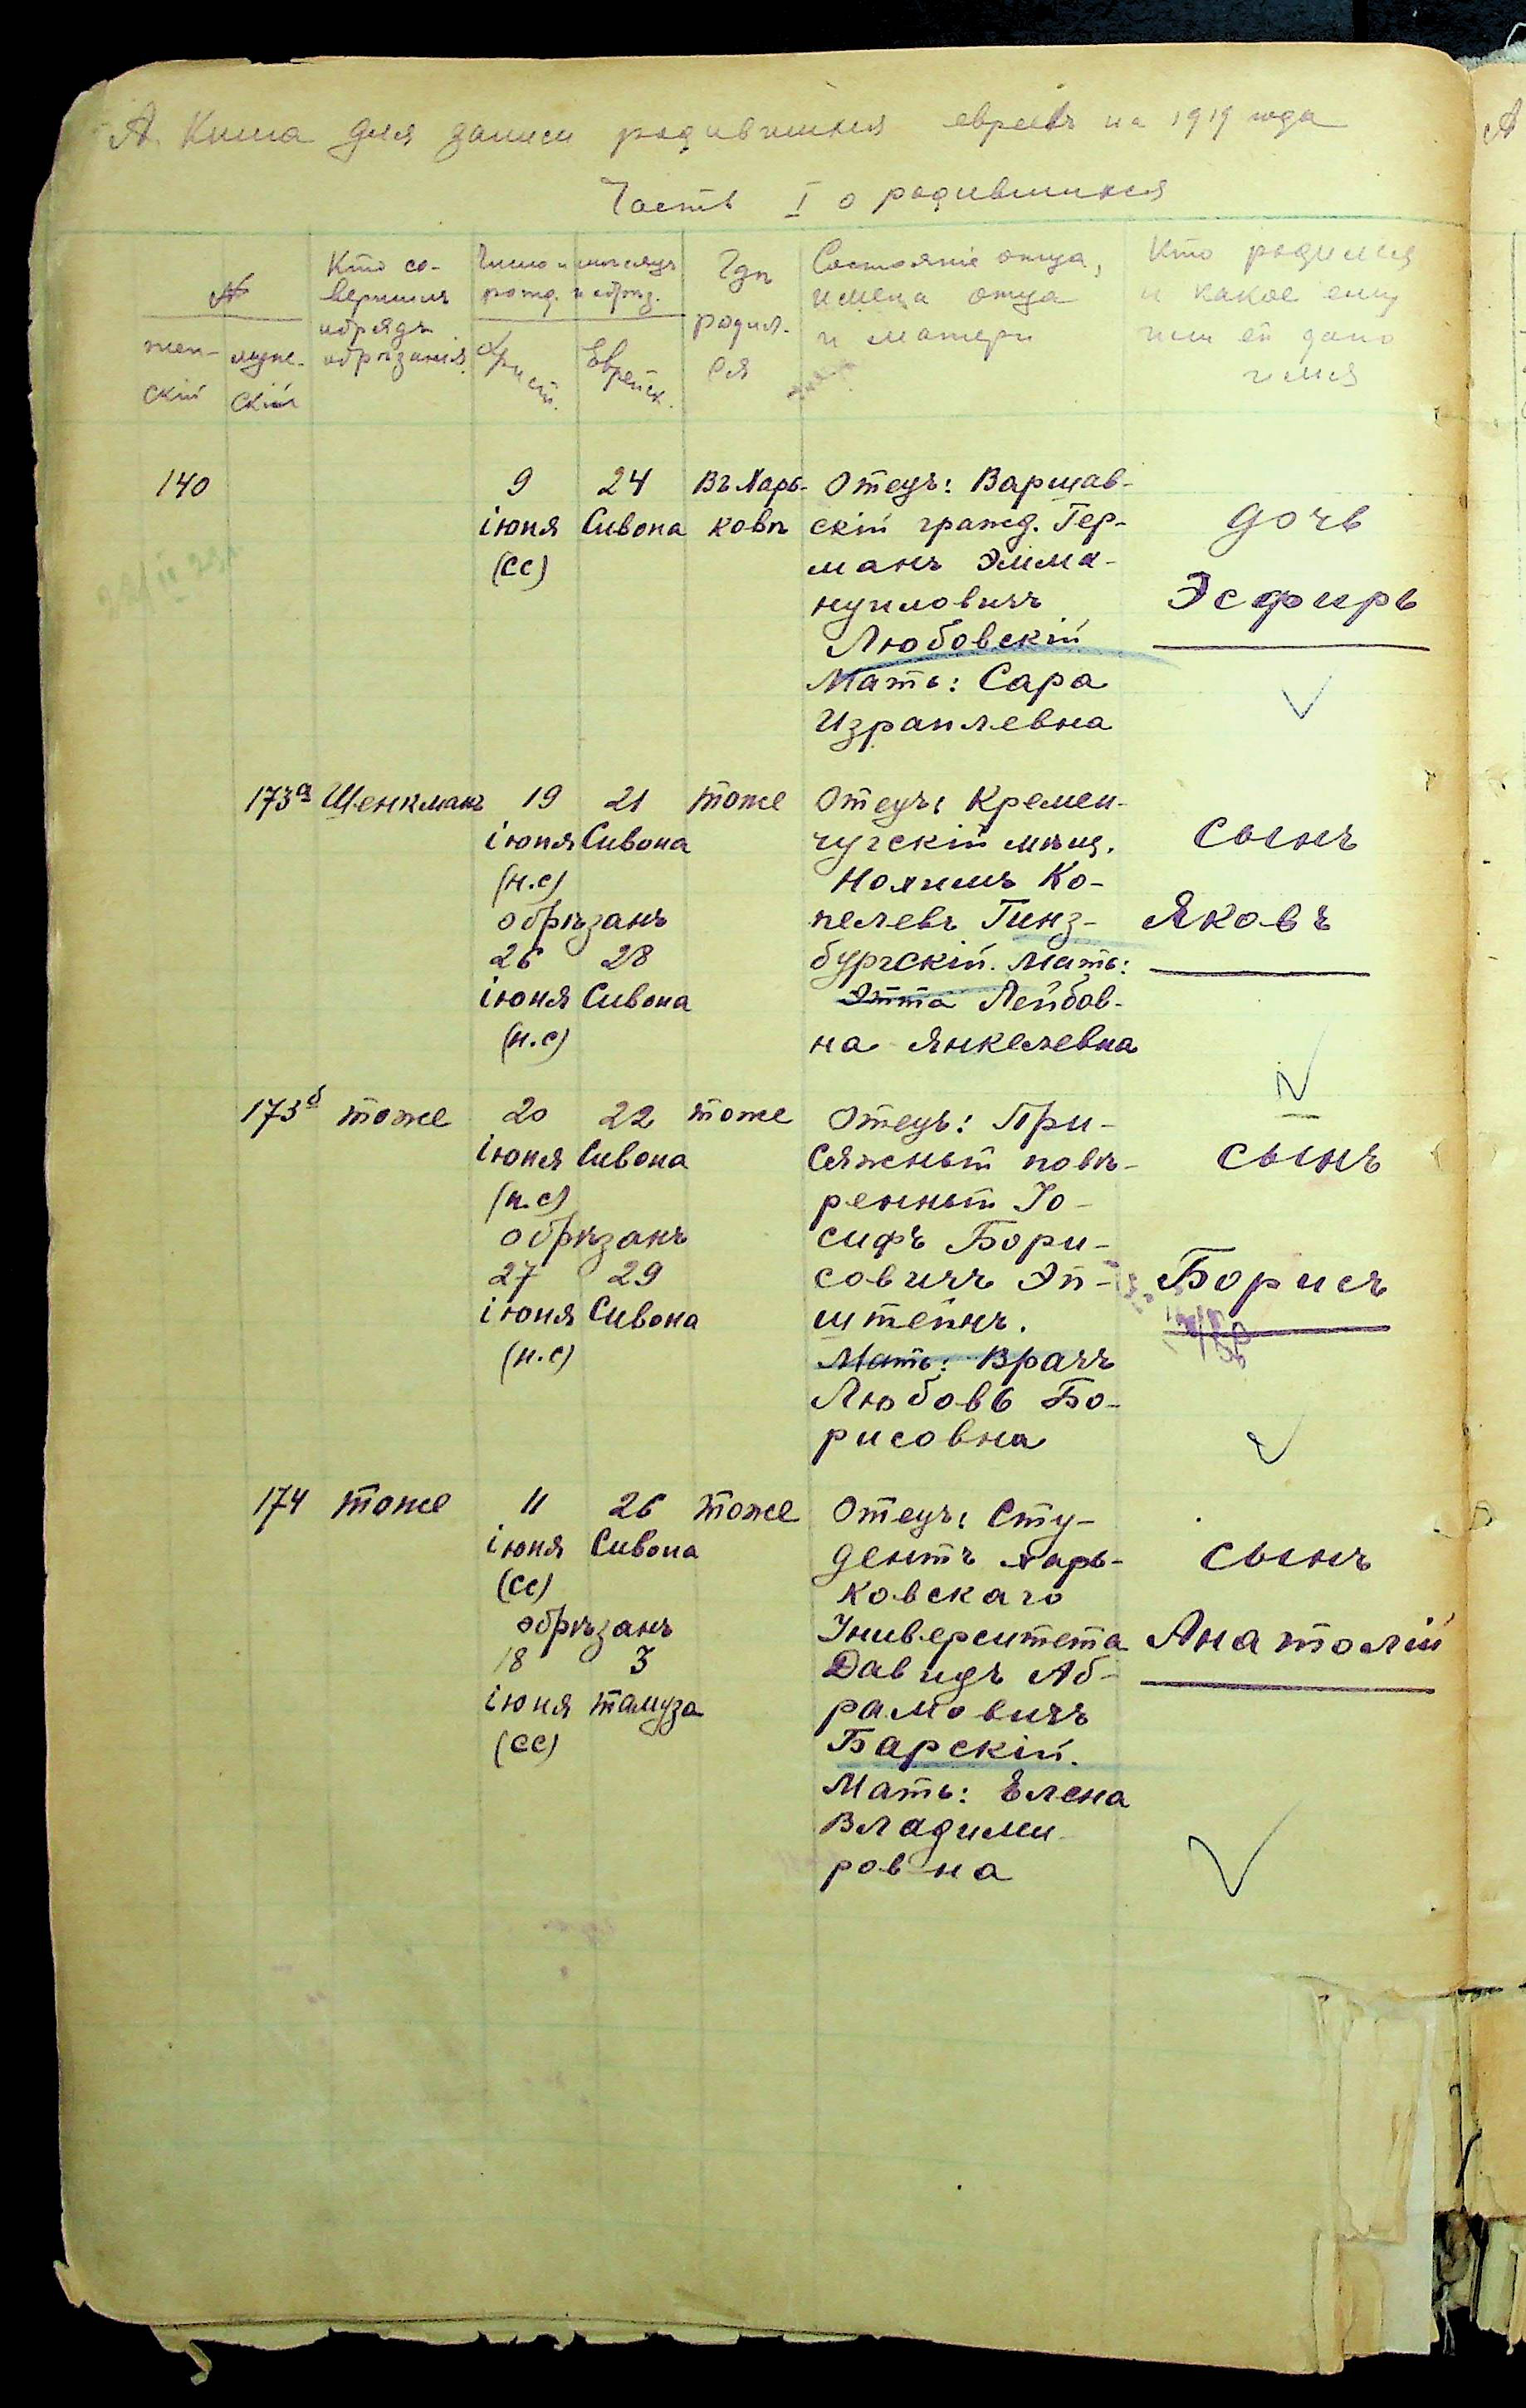 А. Книга для записи родившихся евреевъ на 1919 года
Часть I о родившихся
№
жен-
скій
муже-
скій
Кто со-
вершилъ
обрядъ
обрѣзанія
Число и мѣсяцъ
рожд. и обрѣз.
Христ.
Еврейск.
Гдѣ
родил-
ся
Состояніе отца,
имена отца
и матери
Кто родился
и какое ему
или ей дано
имя
140
9
іюня
(сс)
24
Сивона
Въ Харь-
ковѣ
Отецъ: Варшав-
скій гражд. Гер-
манъ Эмма-
нуиловичъ
Любовскій
Мать: Сара
Израилевна
дочь
Эсфирь
173а
Шенкманъ
19
іюня
(н.с)
21
Сивона
обрѣзанъ
26
іюня
(н.с)
28
Сивона
тоже
Отецъ: Кремен-
чугскій мѣщ.
Нохимъ Ко-
пелевъ Гинз-
бургскій. Мать:
Этта Лейбов-
на Янкелевна
сынъ
Яковъ
173б
тоже
20
іюня
(н.с)
22
Сивона
обрѣзанъ
27
іюня
(н.с)
29
Сивона
тоже
Отецъ: При-
сяжный повѣ-
ренный Іо-
сифъ Бори-
совичъ Эп-
штейнъ.
Мать: Врачъ
Любовь Бо-
рисовна
сынъ
Борисъ
174
тоже
11
іюня
(сс)
26
Сивона
обрѣзанъ
18
іюня
(сс)
3
тамуза
тоже
Отецъ: Сту-
дентъ Харь-
ковскаго
Университета
Давидъ Аб-
рамовичъ
Барскій.
Мать: Елена
Владими-
ровна
сынъ
Анатолій